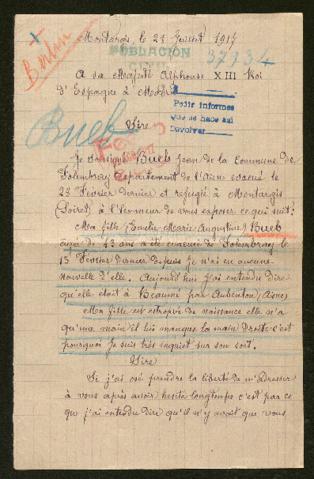 Montargis, le 21 Avril 1917
Berlin
POBLACIÓN
CIVIL
37134
A sa Majesté Alphonse XIII Roi
d'Espagne à Madrid
Petit informes
que se hace así
Sire
Bueb
Je soussigné Bueb Jean de la Commune de
Folembray département de l'Aisne évacué le
23 Février dernier et réfugié à Montargis
(Loiret) à l'honneur de vous exposer ce qui suit:
Ma fille (Emélie-Marie-Augustine) Bueb
âgée de 43 ans a été emmené de Folembray le
13 Février dernier depuis je n'ai eu aucune
nouvelle d'elle. Aujourd'hui j'ai entendu dire
qu'elle était à Beaumé par Aubenton (Aisne)
Ma fille est estropié de naissance elle n'a
qu'une main il lui manque la main droite c'est
pourquoi Je suis très inquiet sur son sort.
Sire
Si j'ai osé prendre la liberté de m'adresser
à vous après avoir hésité longtemps c'est par ce
que j'ai entendu dire qu'il n'y avait que vous